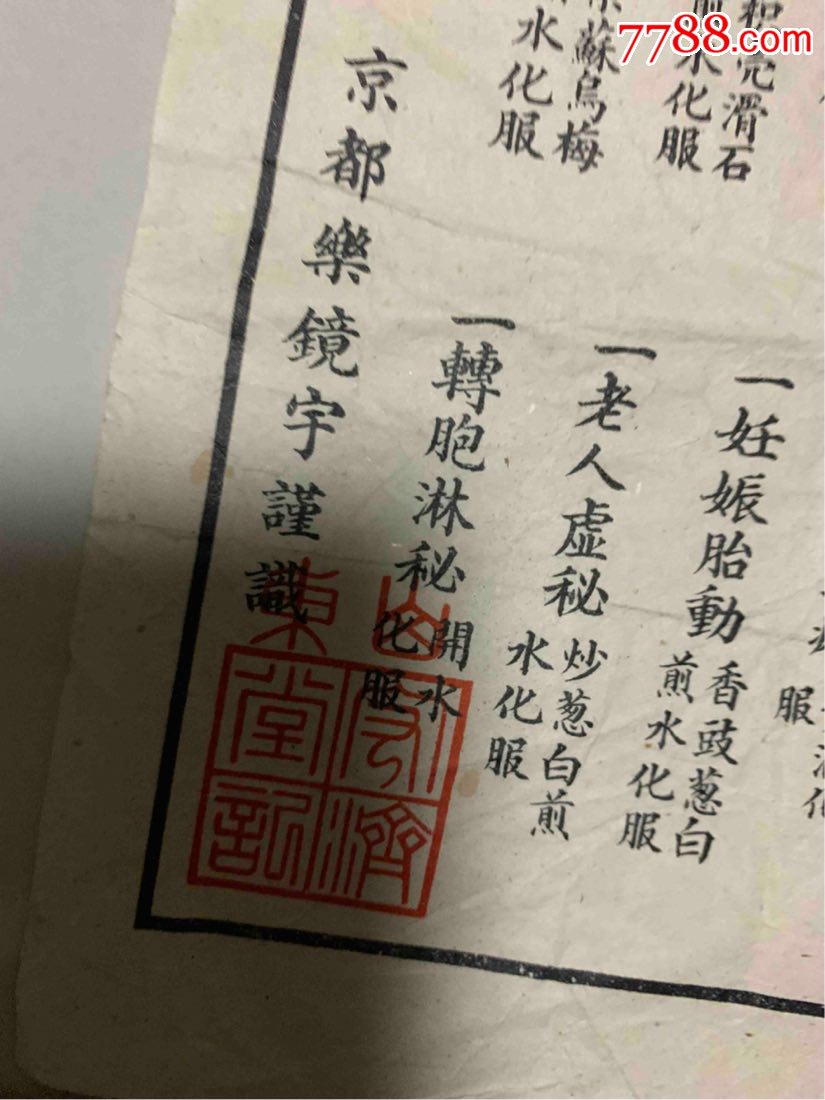 7788.com
滑石
水化服
蘇烏梅
水化服
服
一妊娠胎動
香豉葱白
煎水化服
一老人虛秘
炒葱白煎
水化服
一轉胞淋秘
開水
化服
京都樂鏡宇謹識
山東
宏濟
堂記